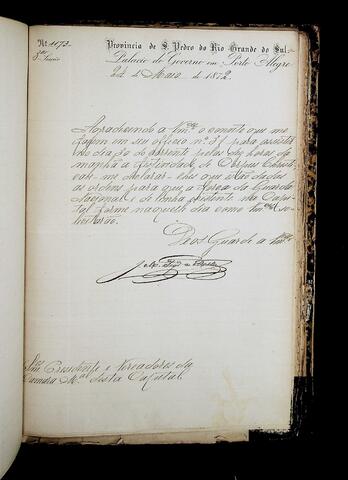 Nº 1173
Provincia de S. Pedro do Rio Grande do Sul.
Palacio do Governo em Porto Alegre
24 de Maio de 1872.
Agradecendo a Vmces o convite que me
fazem em seu officio nº 37 para assistir
no dia 30 do corrente pelas dez horas da
manhã a festividade de Corpus Christi
declarar-lhes que são dadas
as ordens para que a força da Guarda
Nacional e de linha existente na Capi-
tal forme naquelle dia como Vmces so-
licitarão.
Deos Guarde a Vmces
Snrs Presidente e Vereadores da
Camara Mal desta Capital